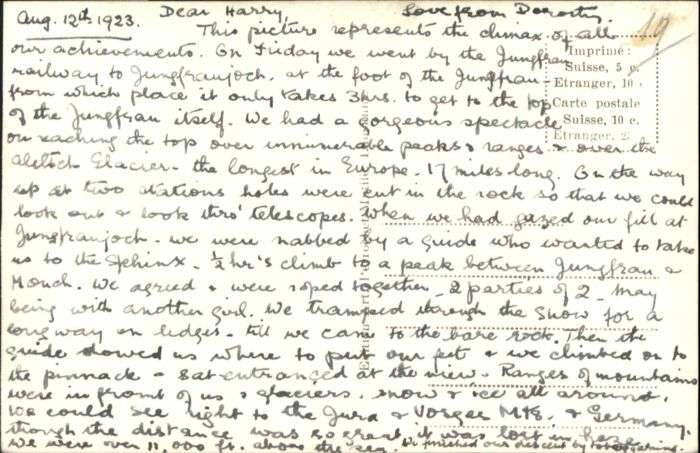 Aug. 12th 1923. Dear Harry, Love from Dorothy.
This picture represents the climax of all
our achievements. On Friday we went by the Jungfrau
railway to Jungfraujoch. at the foot of the Jungfrau -
from which place it only takes 3 hrs. to get to the top
of the Jungfrau itself. We had a gorgeous spectacle
on reaching the top over innumerable peaks & ranges. & over the
Aletsch Glacier - the longest in Europe. 17 miles long. On the way
up at two stations holes were cut in the rock so that we could
look out & look thro' telescopes. When we had gazed our fill at
Jungfraujoch. we were nabbed by a guide who wanted to take
us to the Sphinx. ½ hr's climb to a peak between Jungfrau &
Monch. We agreed & were roped together, 2 parties of 2 - May
being with another girl. We tramped through the snow for a
long way on ledges - till we came to the bare rock. Then the
guide showed us where to put our feet & we climbed on to
the pinnacle & sat entranced at the view. Ranges of mountains
were in front of us & glaciers. snow & ice all around.
We could see right to the Jura & Vosges Mts. & Germany.
though the distance was so great it was lost in haze
We were over 11,000 ft. above the sea. We finished our descent by
19
Imprimé:
Suisse, 5 c.
Etranger, 10 c
Carte postale
Suisse, 10 c.
Etranger, 2